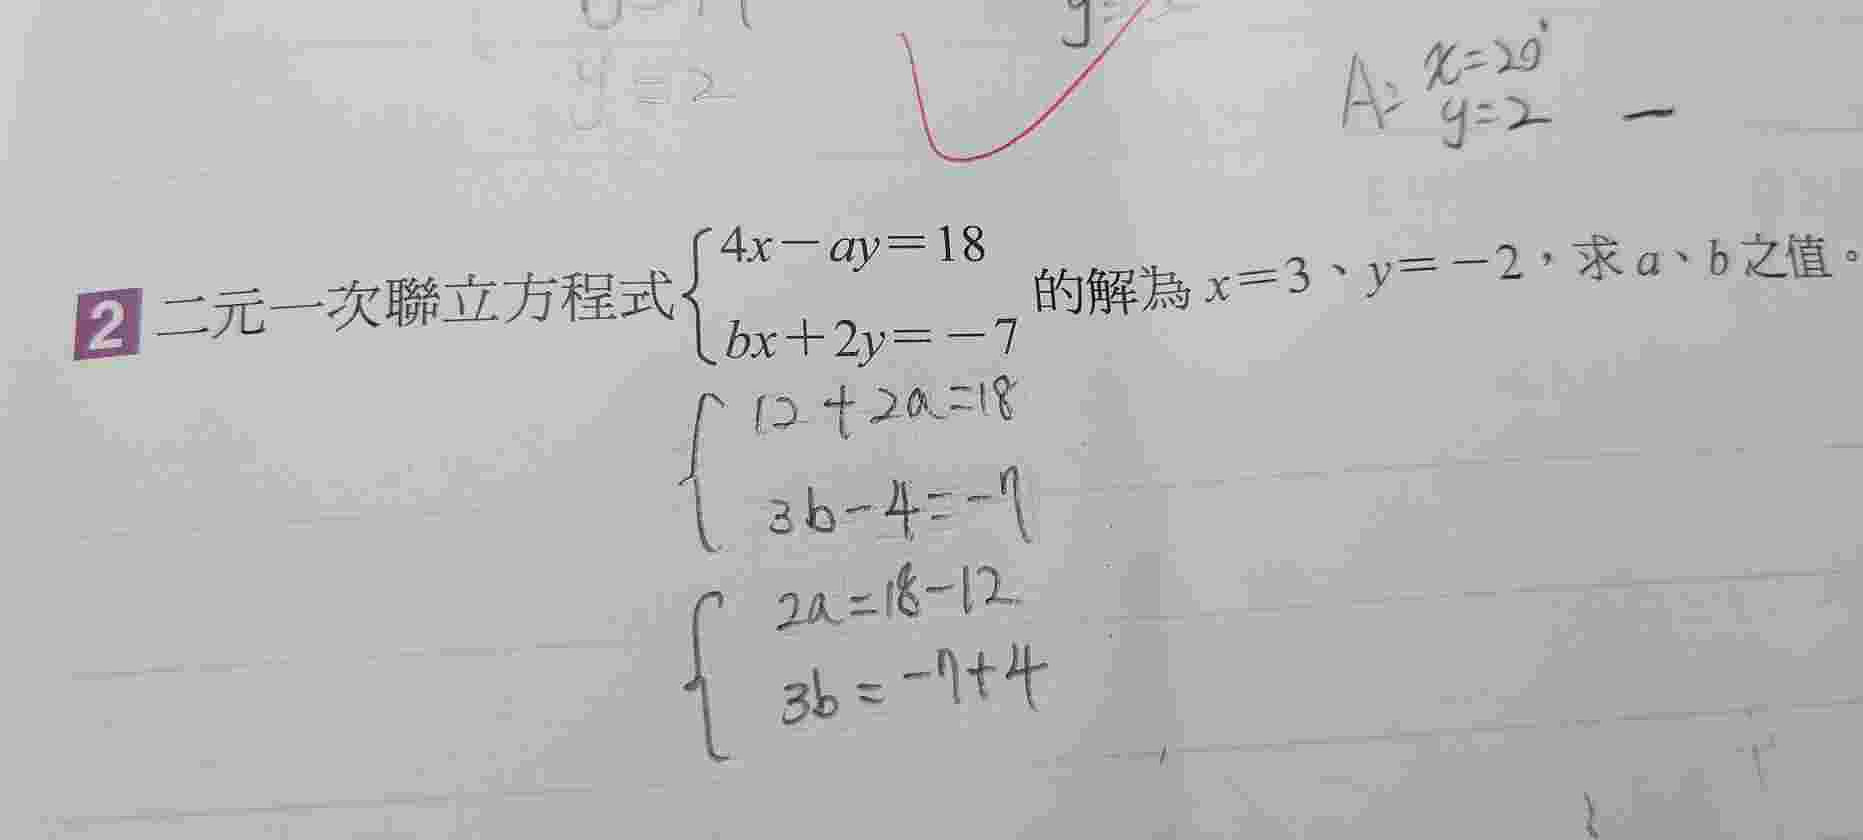 y=2
A: x=20
y=2
2 二元一次聯立方程式{4x-ay=18 bx+2y=-7 的解為 x=3、y=-2，求 a、b 之值。
12+2a=18
3b-4=-7
2a=18-12
3b=-7+4